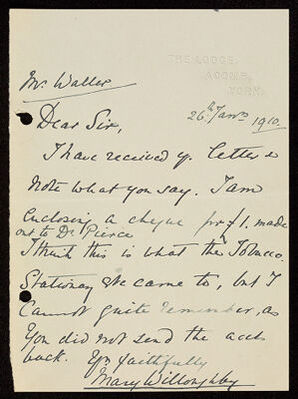 THE LODGE,
ACOMB,
YORK.
Mr. Waller
26th Janry 1910.
Dear Sir,
I have received yr. letter &
note what you say. I am
enclosing a cheque for £1. made
out to Dr. Pierce
I think this is what the Tobacco
Stationary etc came to, but I
cannot quite remember, as
you did not send the accts
back. Yrs faithfully
Mary Willoughby